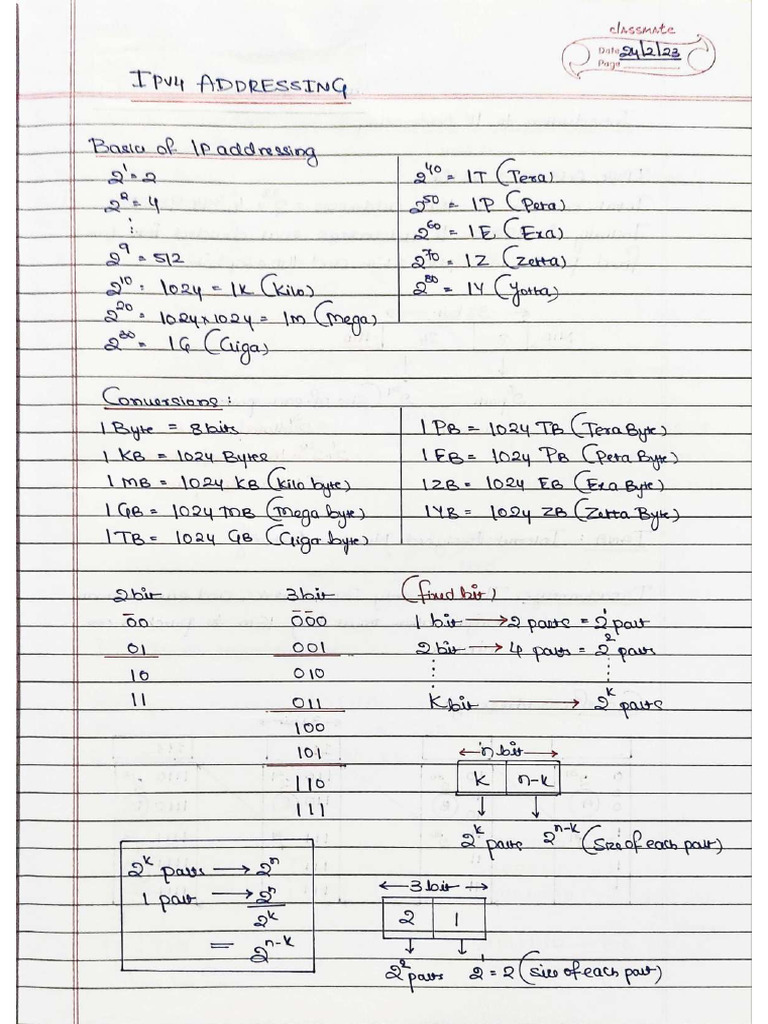 classmate
Date 24/2/23
Page
IPV4 ADDRESSING
Basics of IP addressing
2^1 = 2
2^2 = 4
⋮
2^9 = 512
2^10 = 1024 = 1K (Kilo)
2^20 = 1024×1024 = 1M (Mega)
2^30 = 1G (Giga)
2^40 = 1T (Tera)
2^50 = 1P (Peta)
2^60 = 1E (Exa)
2^70 = 1Z (Zetta)
2^80 = 1Y (Yotta)
Conversions:
1 Byte = 8 bits
1 KB = 1024 Bytes
1 MB = 1024 KB (Kilo byte)
1 GB = 1024 MB (Mega byte)
1 TB = 1024 GB (Giga byte)
1 PB = 1024 TB (Tera Byte)
1 EB = 1024 PB (Peta Byte)
1 ZB = 1024 EB (Exa Byte)
1 YB = 1024 ZB (Zetta Byte)
2 bit
00
01
10
11
3 bit
000
001
010
011
100
101
110
111
(fixed bit)
1 bit → 2 parts = 2^1 part
2 bit → 4 parts = 2^2 parts
⋮ ⋮
K bit → 2^k parts
← n bit →
k n-k
↓ ↓
2^k parts 2^n-k (Size of each part)
2^k parts → 2^n
1 part → 2^n / 2^k
= 2^n-k
← 3 bit →
2 1
↓ ↓
2^2 parts 2^1 = 2 (size of each part)